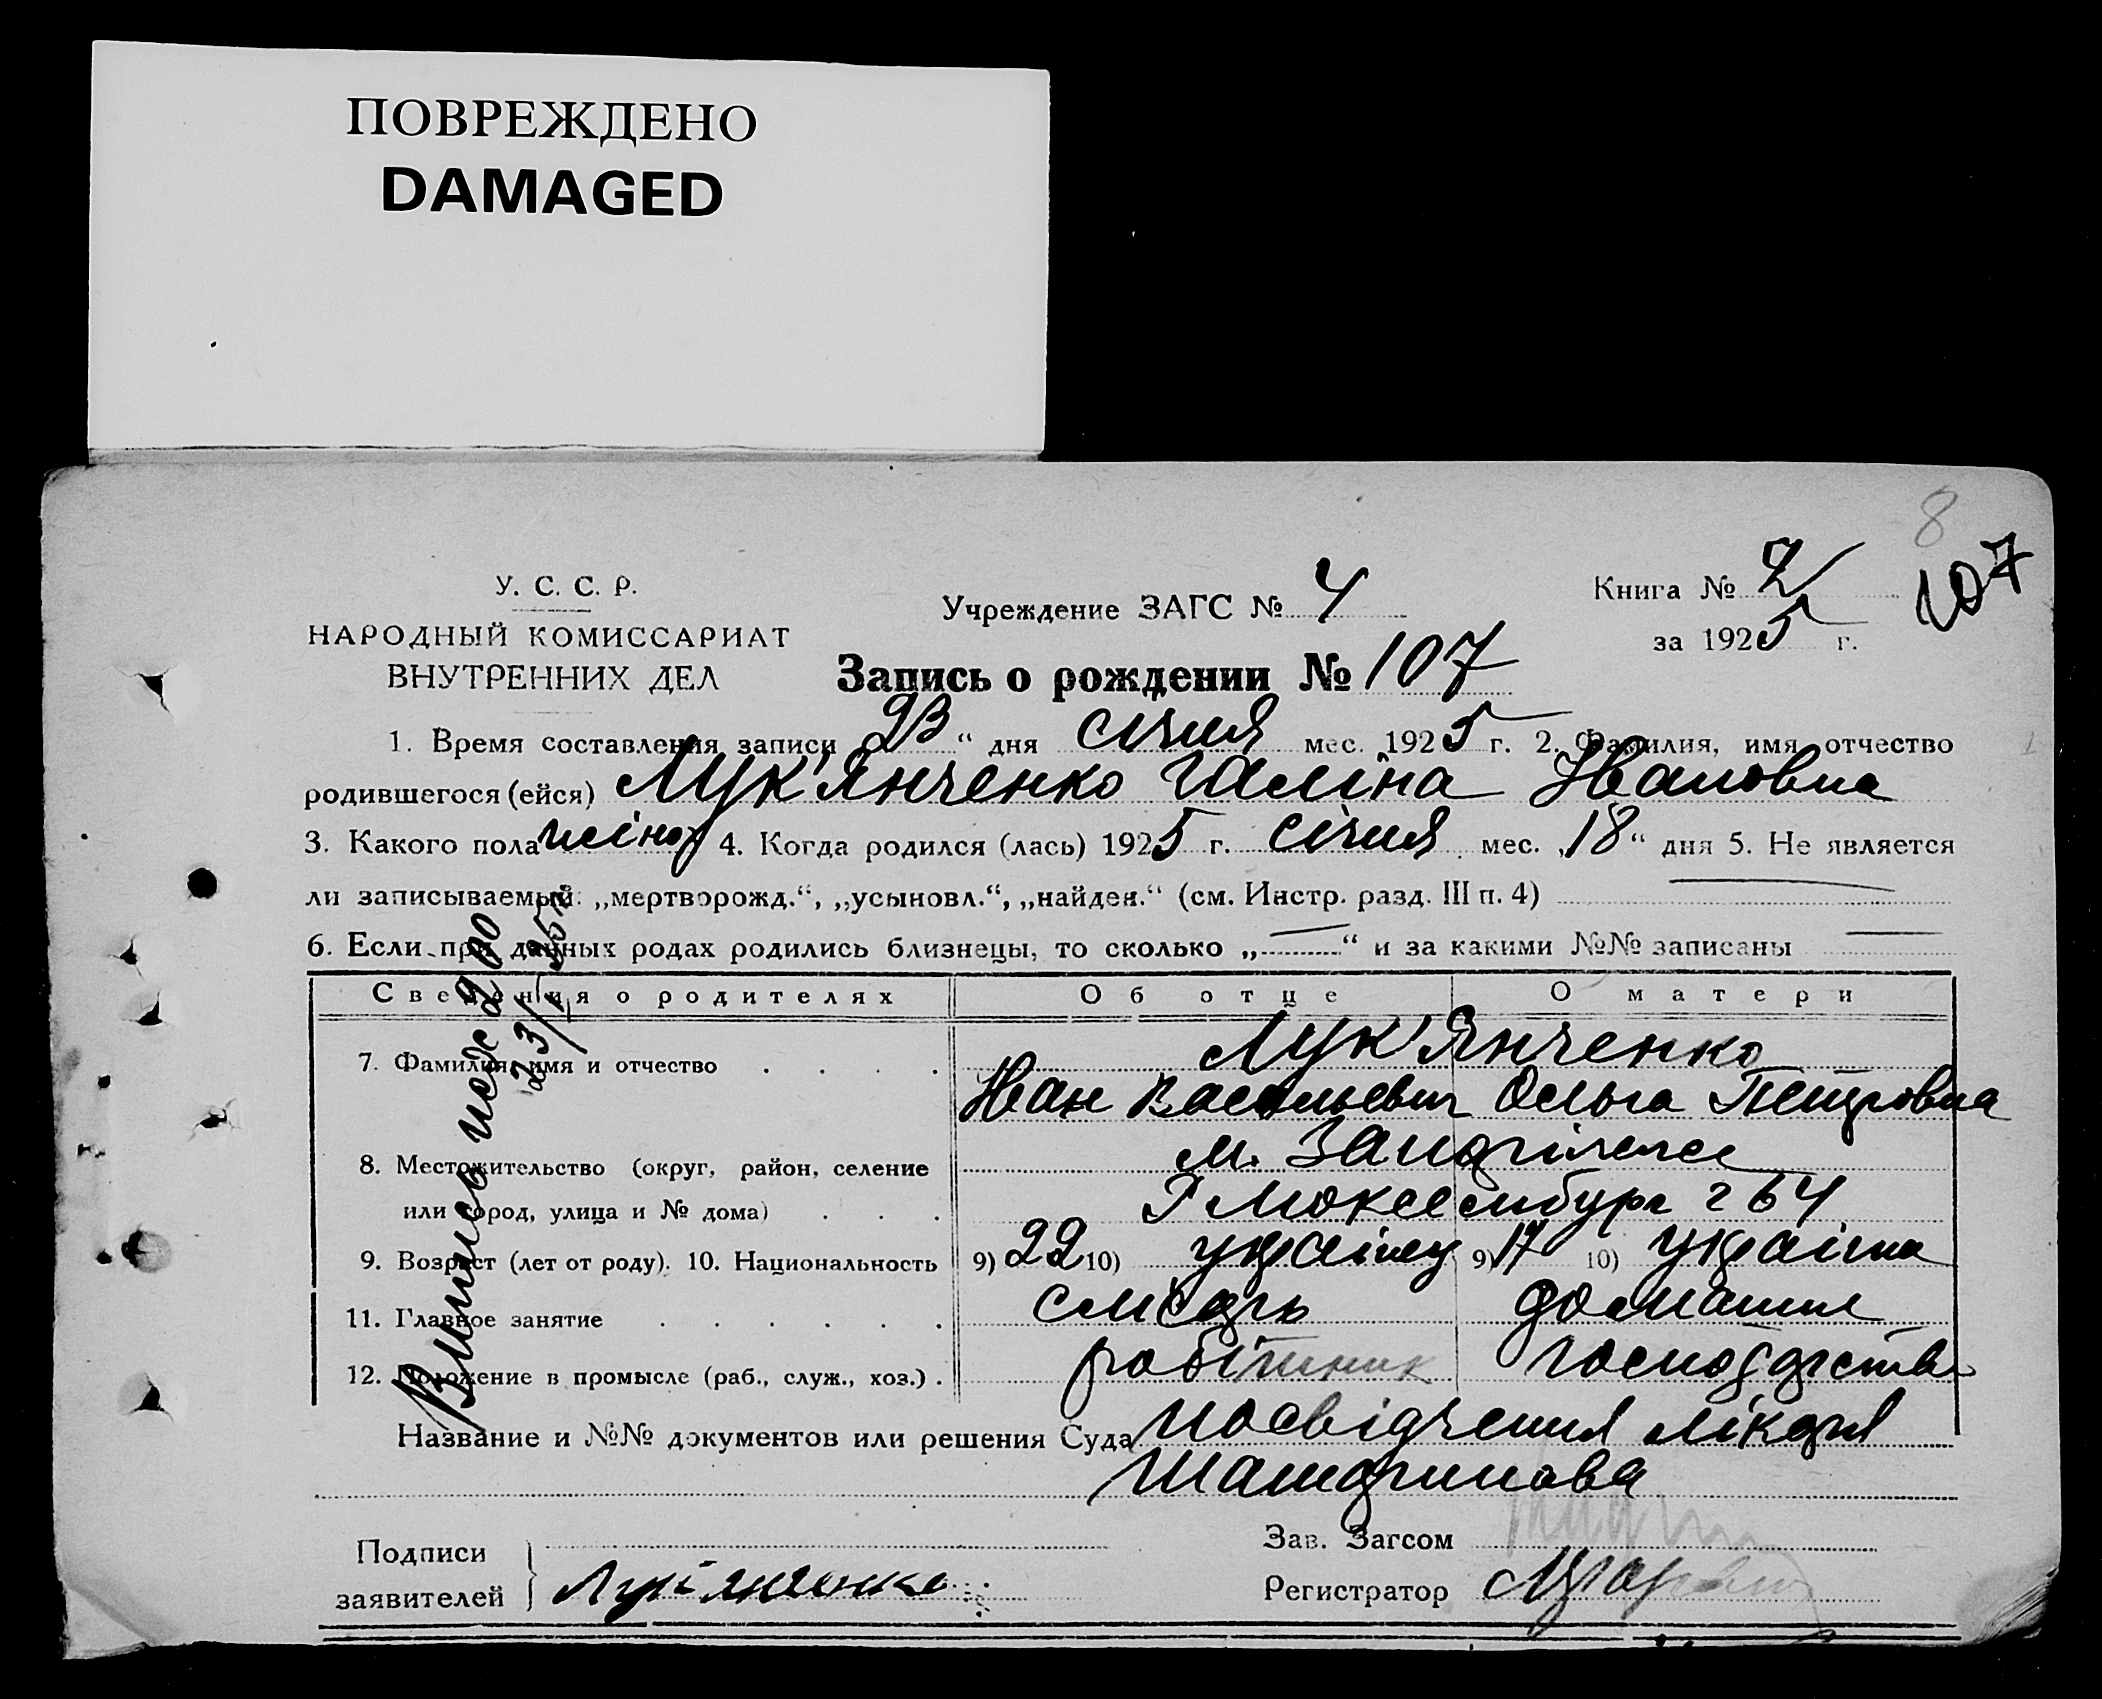 ПОВРЕЖДЕНО
DAMAGED
8
107
У. С. С. Р.
НАРОДНЫЙ КОМИССАРИАТ
ВНУТРЕННИХ ДЕЛ
Учреждение ЗАГС № 4
Книга № 2
за 1925 г.
Запись о рождении № 107
1. Время составления записи 23“ дня січня мес. 1925 г. 2. Фамилия, имя отчество
родившегося (ейся) Лук'янченко Галіна Ивановна
3. Какого пола жіноч 4. Когда родился (лась) 1925 г. січня мес. „18“ дня 5. Не является
ли записываемый: „мертворожд.“, „усыновл.“, „найден.“ (см. Инстр. разд. III п. 4)
6. Если при данных родах родились близнецы, то сколько „—“ и за какими №№ записаны —
Сведения о родителях Об отце О матери
7. Фамилия, имя и отчество . . . . Лук'янченко
Иван Васильевич Ольга Петровна
8. Местожительство (округ, район, селение м.
или город, улица и № дома) . . . Люксембург 64
9. Возраст (лет от роду). 10. Национальность 9) 22 10) україн 9) 17 10) україн
11. Главное занятие . . . . . . слюсарь домашня
12. Положение в промысле (раб., служ., хоз.) . робітник господарство
Название и №№ документов или решения Суда посвідчення лікаря
Подписи
заявителей
Лук'янченко
Зав. Загсом
Регистратор
Выпись
23/I 25 г.